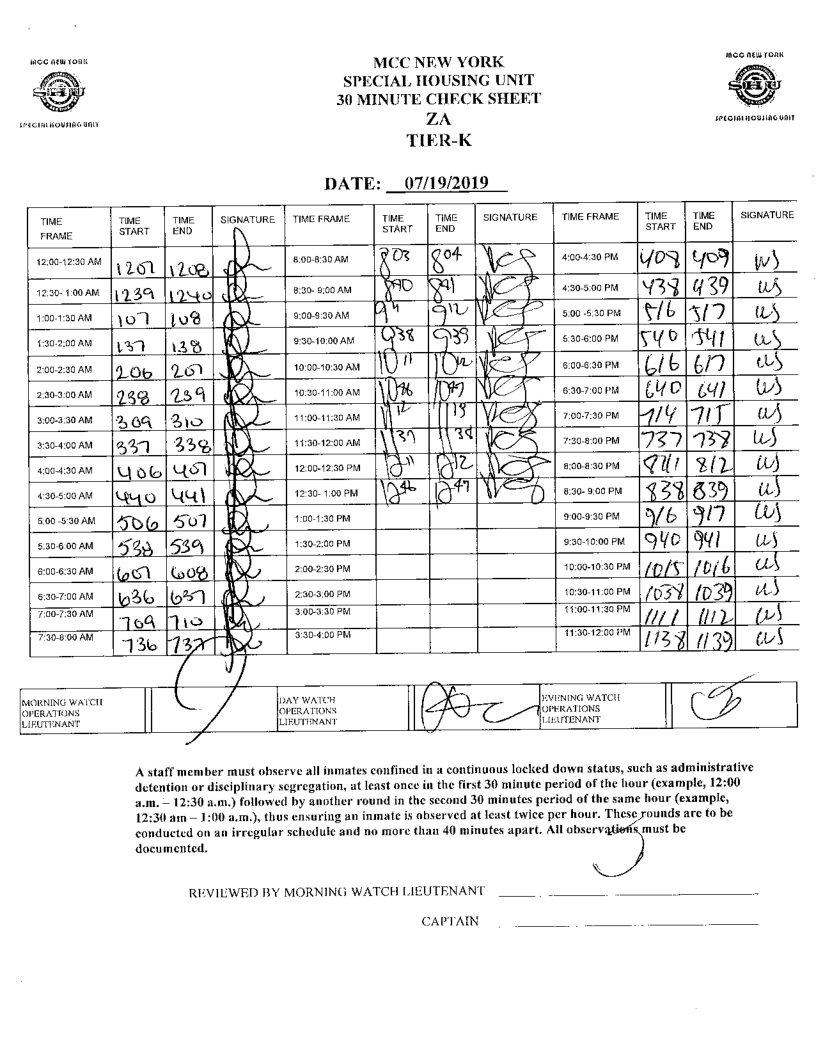 MCC NEW YORK
SPECIAL HOUSING UNIT
MCC NEW YORK
SPECIAL HOUSING UNIT
30 MINUTE CHECK SHEET
ZA
TIER-K
MCC NEW YORK
SHU
SPECIAL HOUSING UNIT
DATE: 07/19/2019
TIME FRAME TIME START TIME END SIGNATURE TIME FRAME TIME START TIME END SIGNATURE TIME FRAME TIME START TIME END SIGNATURE
12:00-12:30 AM 1207 1208 8:00-8:30 AM 803 804 4:00-4:30 PM 408 409
12:30- 1:00 AM 1239 1240 8:30- 9:00 AM 840 841 4:30-5:00 PM 438 439
1:00-1:30 AM 107 108 9:00-9:30 AM 911 912 5:00 -5:30 PM 516 517
1:30-2:00 AM 137 138 9:30-10:00 AM 938 939 5:30-6:00 PM 540 541
2:00-2:30 AM 206 207 10:00-10:30 AM 1011 1012 6:00-6:30 PM 616 617
2:30-3:00 AM 238 239 10:30-11:00 AM 1046 1047 6:30-7:00 PM 640 641
3:00-3:30 AM 309 310 11:00-11:30 AM 1112 1113 7:00-7:30 PM 714 715
3:30-4:00 AM 337 338 11:30-12:00 AM 1137 1138 7:30-8:00 PM 737 738
4:00-4:30 AM 406 407 12:00-12:30 PM 1211 1212 8:00-8:30 PM 811 812
4:30-5:00 AM 440 441 12:30- 1:00 PM 1246 1247 8:30- 9:00 PM 838 839
5:00 -5:30 AM 506 507 1:00-1:30 PM 9:00-9:30 PM 916 917
5:30-6:00 AM 538 539 1:30-2:00 PM 9:30-10:00 PM 940 941
6:00-6:30 AM 607 608 2:00-2:30 PM 10:00-10:30 PM 1015 1016
6:30-7:00 AM 636 637 2:30-3:00 PM 10:30-11:00 PM 1038 1039
7:00-7:30 AM 709 710 3:00-3:30 PM 11:00-11:30 PM 1111 1112
7:30-8:00 AM 736 737 3:30-4:00 PM 11:30-12:00 PM 1138 1139
MORNING WATCH OPERATIONS LIEUTENANT
DAY WATCH OPERATIONS LIEUTENANT
EVENING WATCH OPERATIONS LIEUTENANT
A staff member must observe all inmates confined in a continuous locked down status, such as administrative
detention or disciplinary segregation, at least once in the first 30 minute period of the hour (example, 12:00
a.m. – 12:30 a.m.) followed by another round in the second 30 minutes period of the same hour (example,
12:30 am – 1:00 a.m.), thus ensuring an inmate is observed at least twice per hour. These rounds are to be
conducted on an irregular schedule and no more than 40 minutes apart. All observations must be
documented.
REVIEWED BY MORNING WATCH LIEUTENANT
CAPTAIN